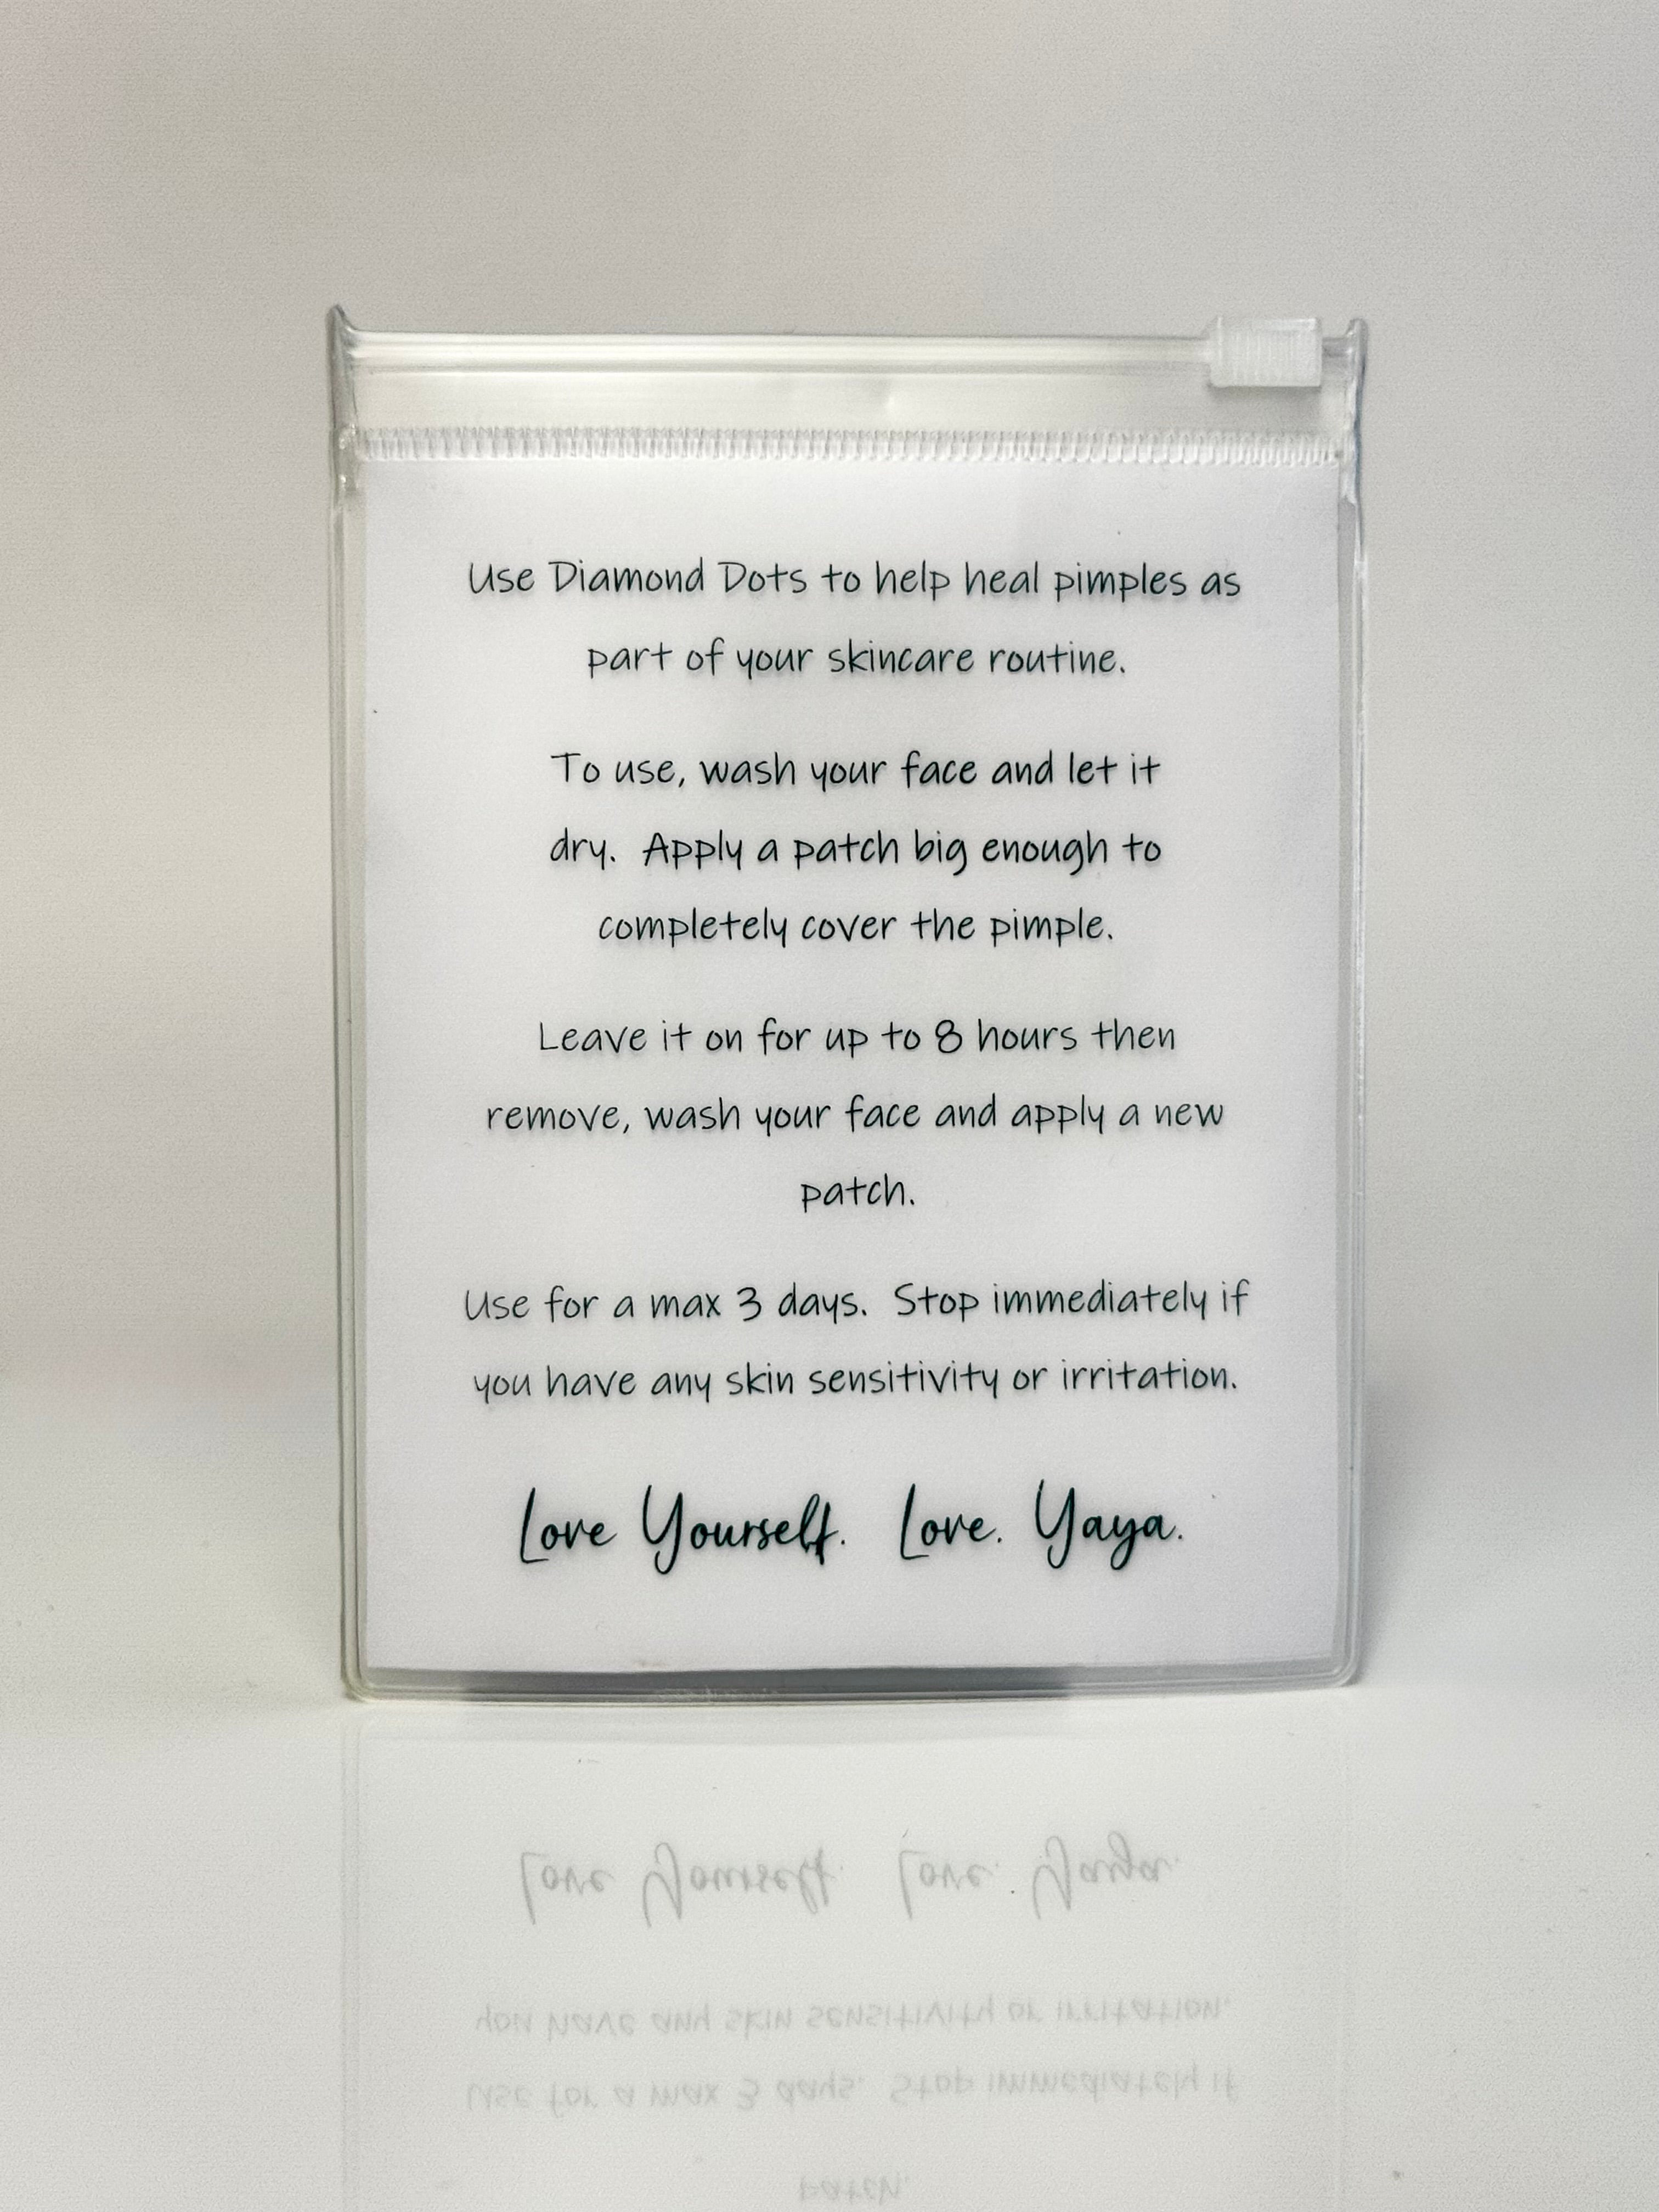 Use Diamond Dots to help heal pimples as
part of your skincare routine.
To use, wash your face and let it
dry. Apply a patch big enough to
completely cover the pimple.
Leave it on for up to 8 hours then
remove, wash your face and apply a new
patch.
Use for a max 3 days. Stop immediately if
you have any skin sensitivity or irritation.
Love Yourself. Love. Yaya.